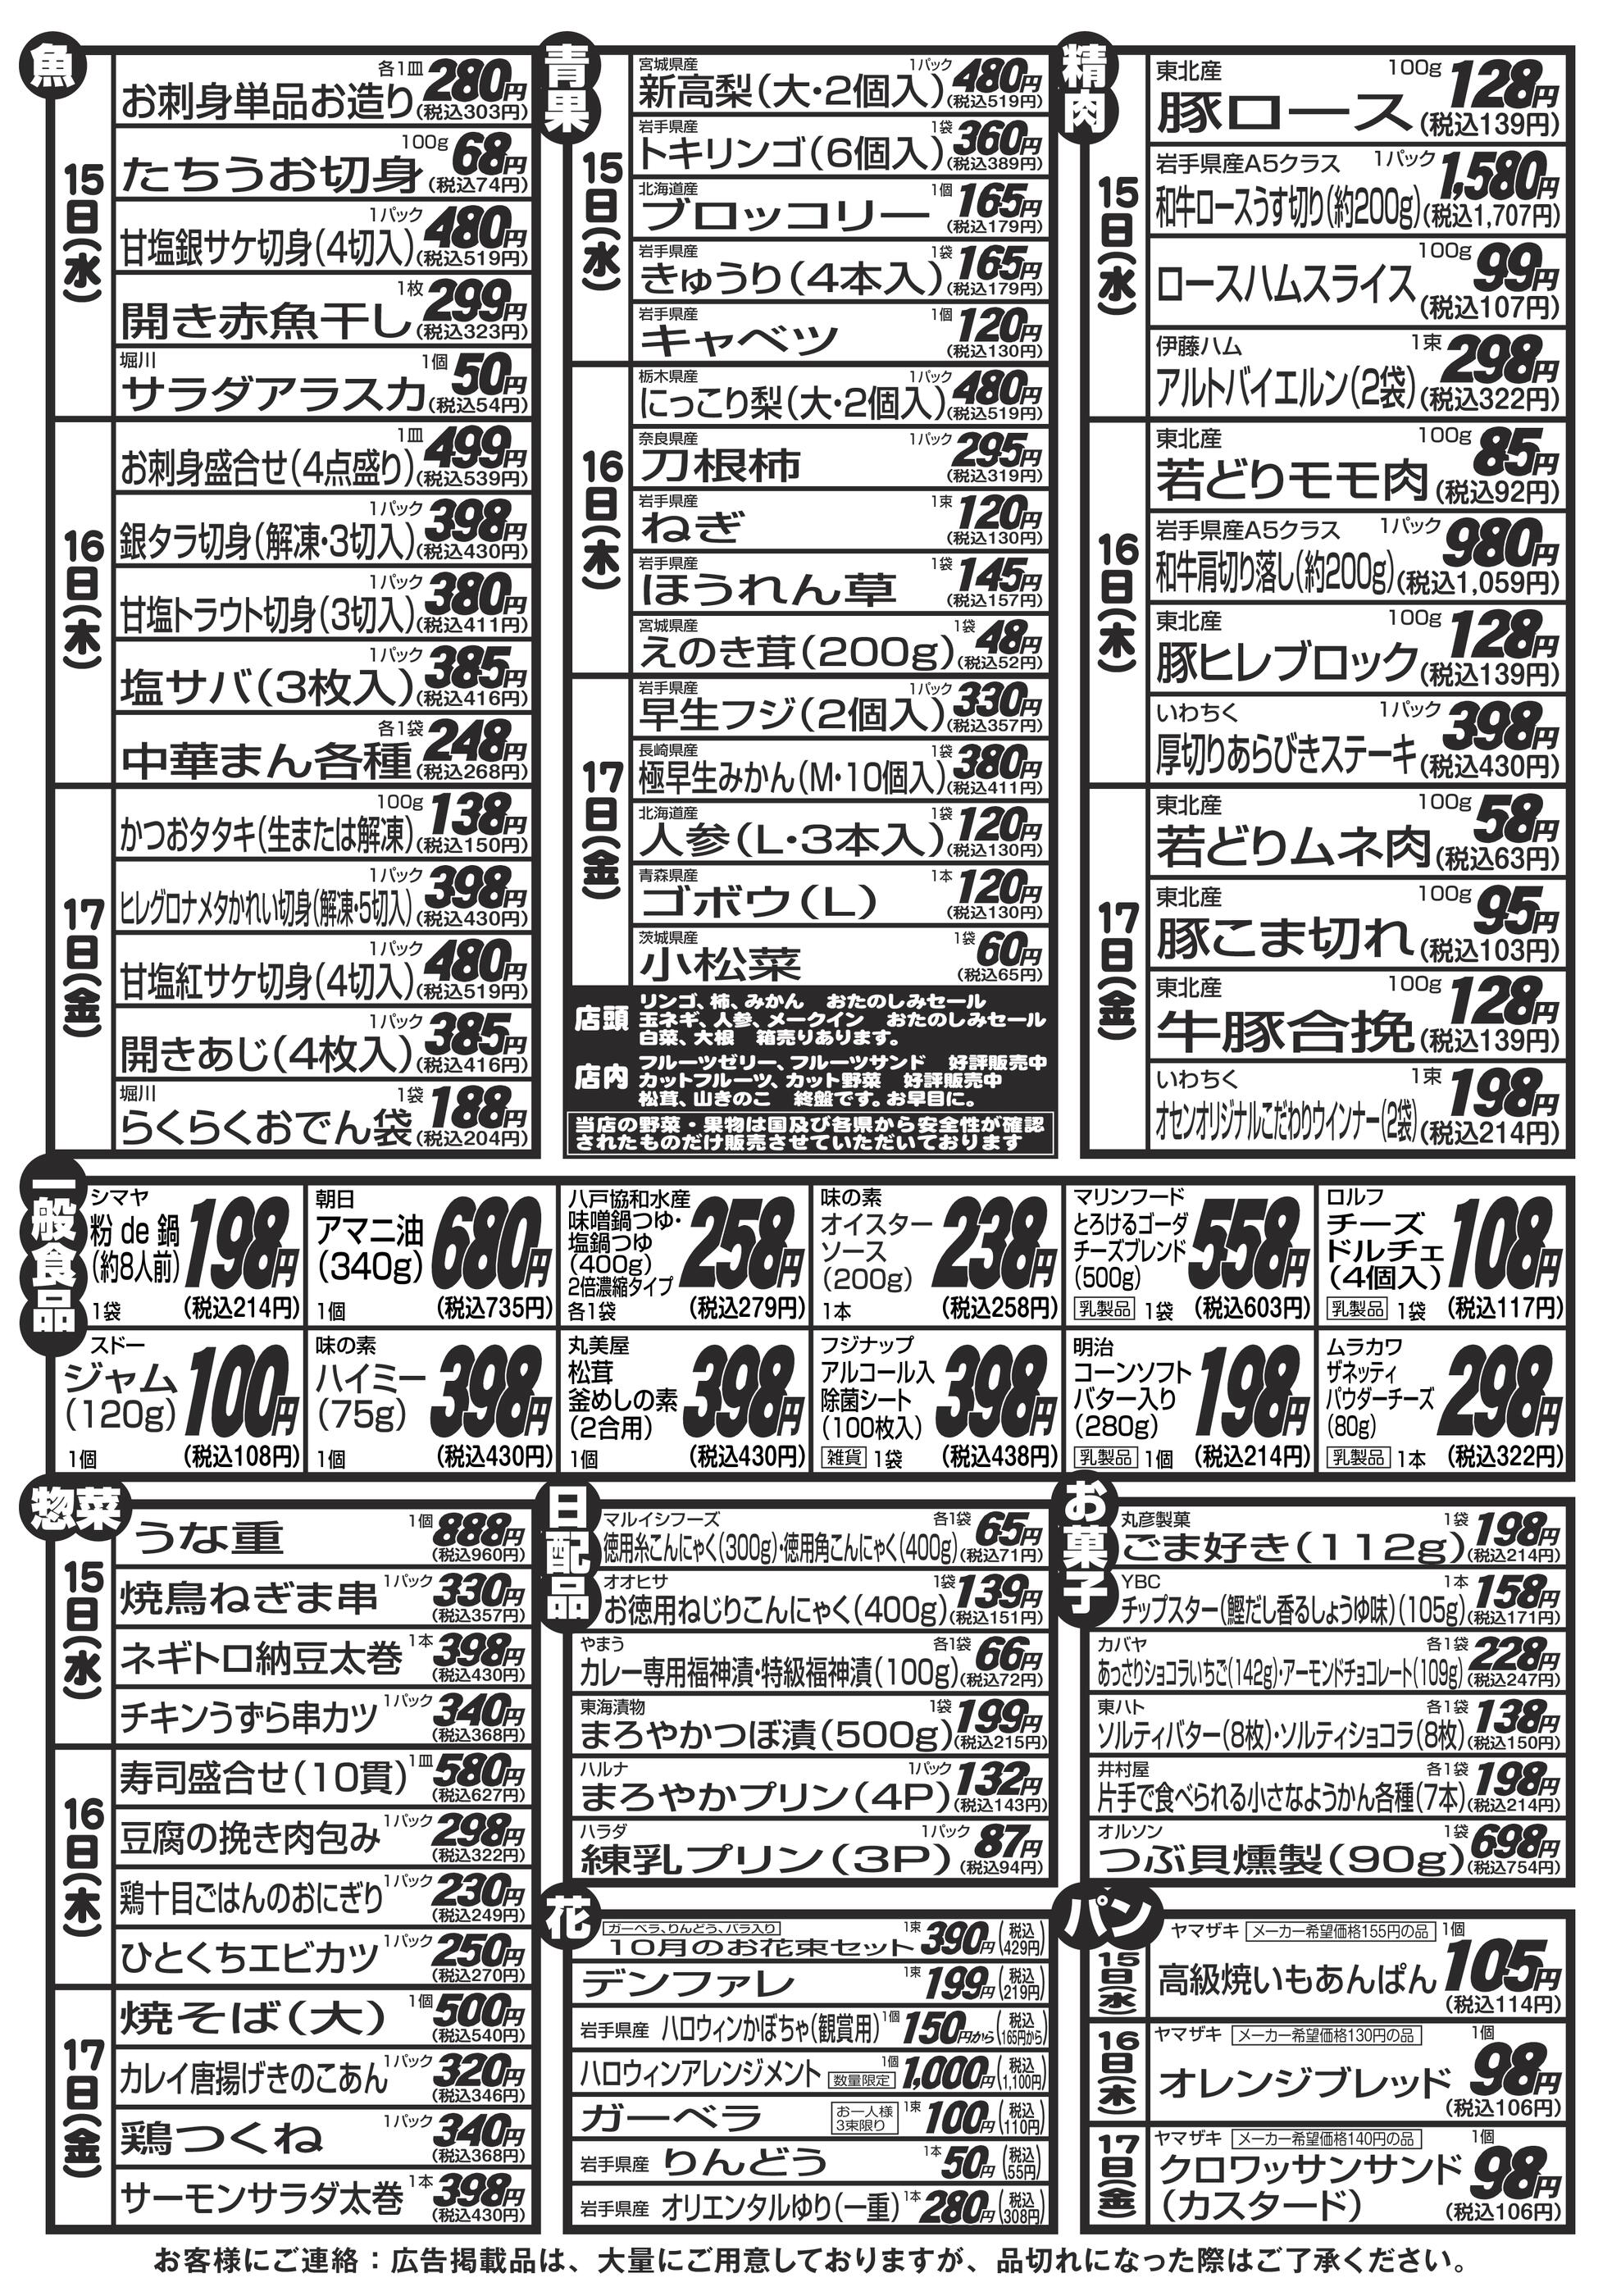 魚
15日(水)
各1皿
お刺身単品お造り 280円
(税込303円)
100g
たちうお切身 68円
(税込74円)
1パック
甘塩銀サケ切身(4切入) 480円
(税込519円)
1枚
開き赤魚干し 299円
(税込323円)
堀川 1個
サラダアラスカ 50円
(税込54円)
16日(木)
1皿
お刺身盛合せ(4点盛り) 499円
(税込539円)
1パック
銀タラ切身(解凍・3切入) 398円
(税込430円)
1パック
甘塩トラウト切身(3切入) 380円
(税込411円)
1パック
塩サバ(3枚入) 385円
(税込416円)
各1袋
中華まん各種 248円
(税込268円)
17日(金)
100g
かつおタタキ(生または解凍) 138円
(税込150円)
1パック
ヒレグロナメタかれい切身(解凍・5切入) 398円
(税込430円)
1パック
甘塩紅サケ切身(4切入) 480円
(税込519円)
1パック
開きあじ(4枚入) 385円
(税込416円)
堀川 1袋
らくらくおでん袋 188円
(税込204円)
青果
15日(水)
宮城県産 1パック
新高梨(大・2個入) 480円
(税込519円)
岩手県産 1袋
トキリンゴ(6個入) 360円
(税込389円)
北海道産 1個
ブロッコリー 165円
(税込179円)
岩手県産 1袋
きゅうり(4本入) 165円
(税込179円)
岩手県産 1個
キャベツ 120円
(税込130円)
16日(木)
栃木県産 1パック
にっこり梨(大・2個入) 480円
(税込519円)
奈良県産 1パック
刀根柿 295円
(税込319円)
岩手県産 1束
ねぎ 120円
(税込130円)
岩手県産 1袋
ほうれん草 145円
(税込157円)
宮城県産 1袋
えのき茸(200g) 48円
(税込52円)
17日(金)
岩手県産 1パック
早生フジ(2個入) 330円
(税込357円)
長崎県産 1袋
極早生みかん(M・10個入) 380円
(税込411円)
北海道産 1袋
人参(L・3本入) 120円
(税込130円)
青森県産 1本
ゴボウ(L) 120円
(税込130円)
茨城県産 1袋
小松菜 60円
(税込65円)
店頭
リンゴ、柿、みかん おたのしみセール
玉ネギ、人参、メークイン おたのしみセール
白菜、大根 箱売りあります。
店内
フルーツゼリー、フルーツサンド 好評販売中
カットフルーツ、カット野菜 好評販売中
松茸、山きのこ 終盤です。お早目に。
当店の野菜・果物は国及び各県から安全性が確認
されたものだけ販売させていただいております
精肉
15日(水)
東北産 100g
豚ロース 128円
(税込139円)
岩手県産A5クラス 1パック
和牛ロースうす切り(約200g) 1,580円
(税込1,707円)
100g
ロースハムスライス 99円
(税込107円)
伊藤ハム 1束
アルトバイエルン(2袋) 298円
(税込322円)
16日(木)
東北産 100g
若どりモモ肉 85円
(税込92円)
岩手県産A5クラス 1パック
和牛肩切り落し(約200g) 980円
(税込1,059円)
東北産 100g
豚ヒレブロック 128円
(税込139円)
いわちく 1パック
厚切りあらびきステーキ 398円
(税込430円)
17日(金)
東北産 100g
若どりムネ肉 58円
(税込63円)
東北産 100g
豚こま切れ 95円
(税込103円)
東北産 100g
牛豚合挽 128円
(税込139円)
いわちく 1束
オセンオリジナルこだわりウインナー(2袋) 198円
(税込214円)
一般食品
シマヤ
粉 de 鍋
(約8人前)
198円
1袋 (税込214円)
朝日
アマニ油
(340g)
680円
1個 (税込735円)
八戸協和水産
味噌鍋つゆ・
塩鍋つゆ
(400g)
2倍濃縮タイプ
258円
各1袋 (税込279円)
味の素
オイスター
ソース
(200g)
238円
1本 (税込258円)
マリンフード
とろけるゴーダ
チーズブレンド
(500g)
558円
乳製品 1袋 (税込603円)
ロルフ
チーズ
ドルチェ
(4個入)
108円
乳製品 1袋 (税込117円)
スドー
ジャム
(120g)
100円
1個 (税込108円)
味の素
ハイミー
(75g)
398円
1個 (税込430円)
丸美屋
松茸
釜めしの素
(2合用)
398円
1個 (税込430円)
フジナップ
アルコール入
除菌シート
(100枚入)
398円
雑貨 1袋 (税込438円)
明治
コーンソフト
バター入り
(280g)
198円
乳製品 1個 (税込214円)
ムラカワ
ザネッティ
パウダーチーズ
(80g)
298円
乳製品 1本 (税込322円)
惣菜
15日(水)
うな重 1個 888円
(税込960円)
焼鳥ねぎま串 1パック 330円
(税込357円)
ネギトロ納豆太巻 1本 398円
(税込430円)
チキンうずら串カツ 1パック 340円
(税込368円)
16日(木)
寿司盛合せ(10貫) 1皿 580円
(税込627円)
豆腐の挽き肉包み 1パック 298円
(税込322円)
鶏十目ごはんのおにぎり 1パック 230円
(税込249円)
ひとくちエビカツ 1パック 250円
(税込270円)
17日(金)
焼そば(大) 1個 500円
(税込540円)
カレイ唐揚げきのこあん 1パック 320円
(税込346円)
鶏つくね 1パック 340円
(税込368円)
サーモンサラダ太巻 1本 398円
(税込430円)
日配品
マルイシフーズ 各1袋
徳用糸こんにゃく(300g)・徳用角こんにゃく(400g) 65円
(税込71円)
オオヒサ 1袋
お徳用ねじりこんにゃく(400g) 139円
(税込151円)
やまう 各1袋
カレー専用福神漬・特級福神漬(100g) 66円
(税込72円)
東海漬物 1袋
まろやかつぼ漬(500g) 199円
(税込215円)
ハルナ 1パック
まろやかプリン(4P) 132円
(税込143円)
ハラダ 1パック
練乳プリン(3P) 87円
(税込94円)
花
ガーベラ、りんどう、バラ入り
10月のお花束セット 1束 390円 (税込429円)
デンファレ 1束 199円 (税込219円)
岩手県産 ハロウィンかぼちゃ(観賞用) 1個 150円から (税込165円から)
ハロウィンアレンジメント 数量限定 1個 1,000円 (税込1,100円)
ガーベラ お一人様3束限り 1束 100円 (税込110円)
岩手県産 りんどう 1本 50円 (税込55円)
岩手県産 オリエンタルゆり(一重) 1本 280円 (税込308円)
お菓子
丸彦製菓 1袋
ごま好き(112g) 198円
(税込214円)
YBC 1本
チップスター(鰹だし香るしょうゆ味)(105g) 158円
(税込171円)
カバヤ 各1袋
あっさりショコラいちご(142g)・アーモンドチョコレート(109g) 228円
(税込247円)
東ハト 各1袋
ソルティバター(8枚)・ソルティショコラ(8枚) 138円
(税込150円)
井村屋 各1袋
片手で食べられる小さなようかん各種(7本) 198円
(税込214円)
オルソン 1袋
つぶ貝燻製(90g) 698円
(税込754円)
パン
15日(水)
ヤマザキ メーカー希望価格155円の品 1個
高級焼いもあんぱん 105円
(税込114円)
16日(木)
ヤマザキ メーカー希望価格130円の品 1個
オレンジブレッド 98円
(税込106円)
17日(金)
ヤマザキ メーカー希望価格140円の品 1個
クロワッサンサンド
(カスタード) 98円
(税込106円)
お客様にご連絡：広告掲載品は、大量にご用意しておりますが、品切れになった際はご了承ください。